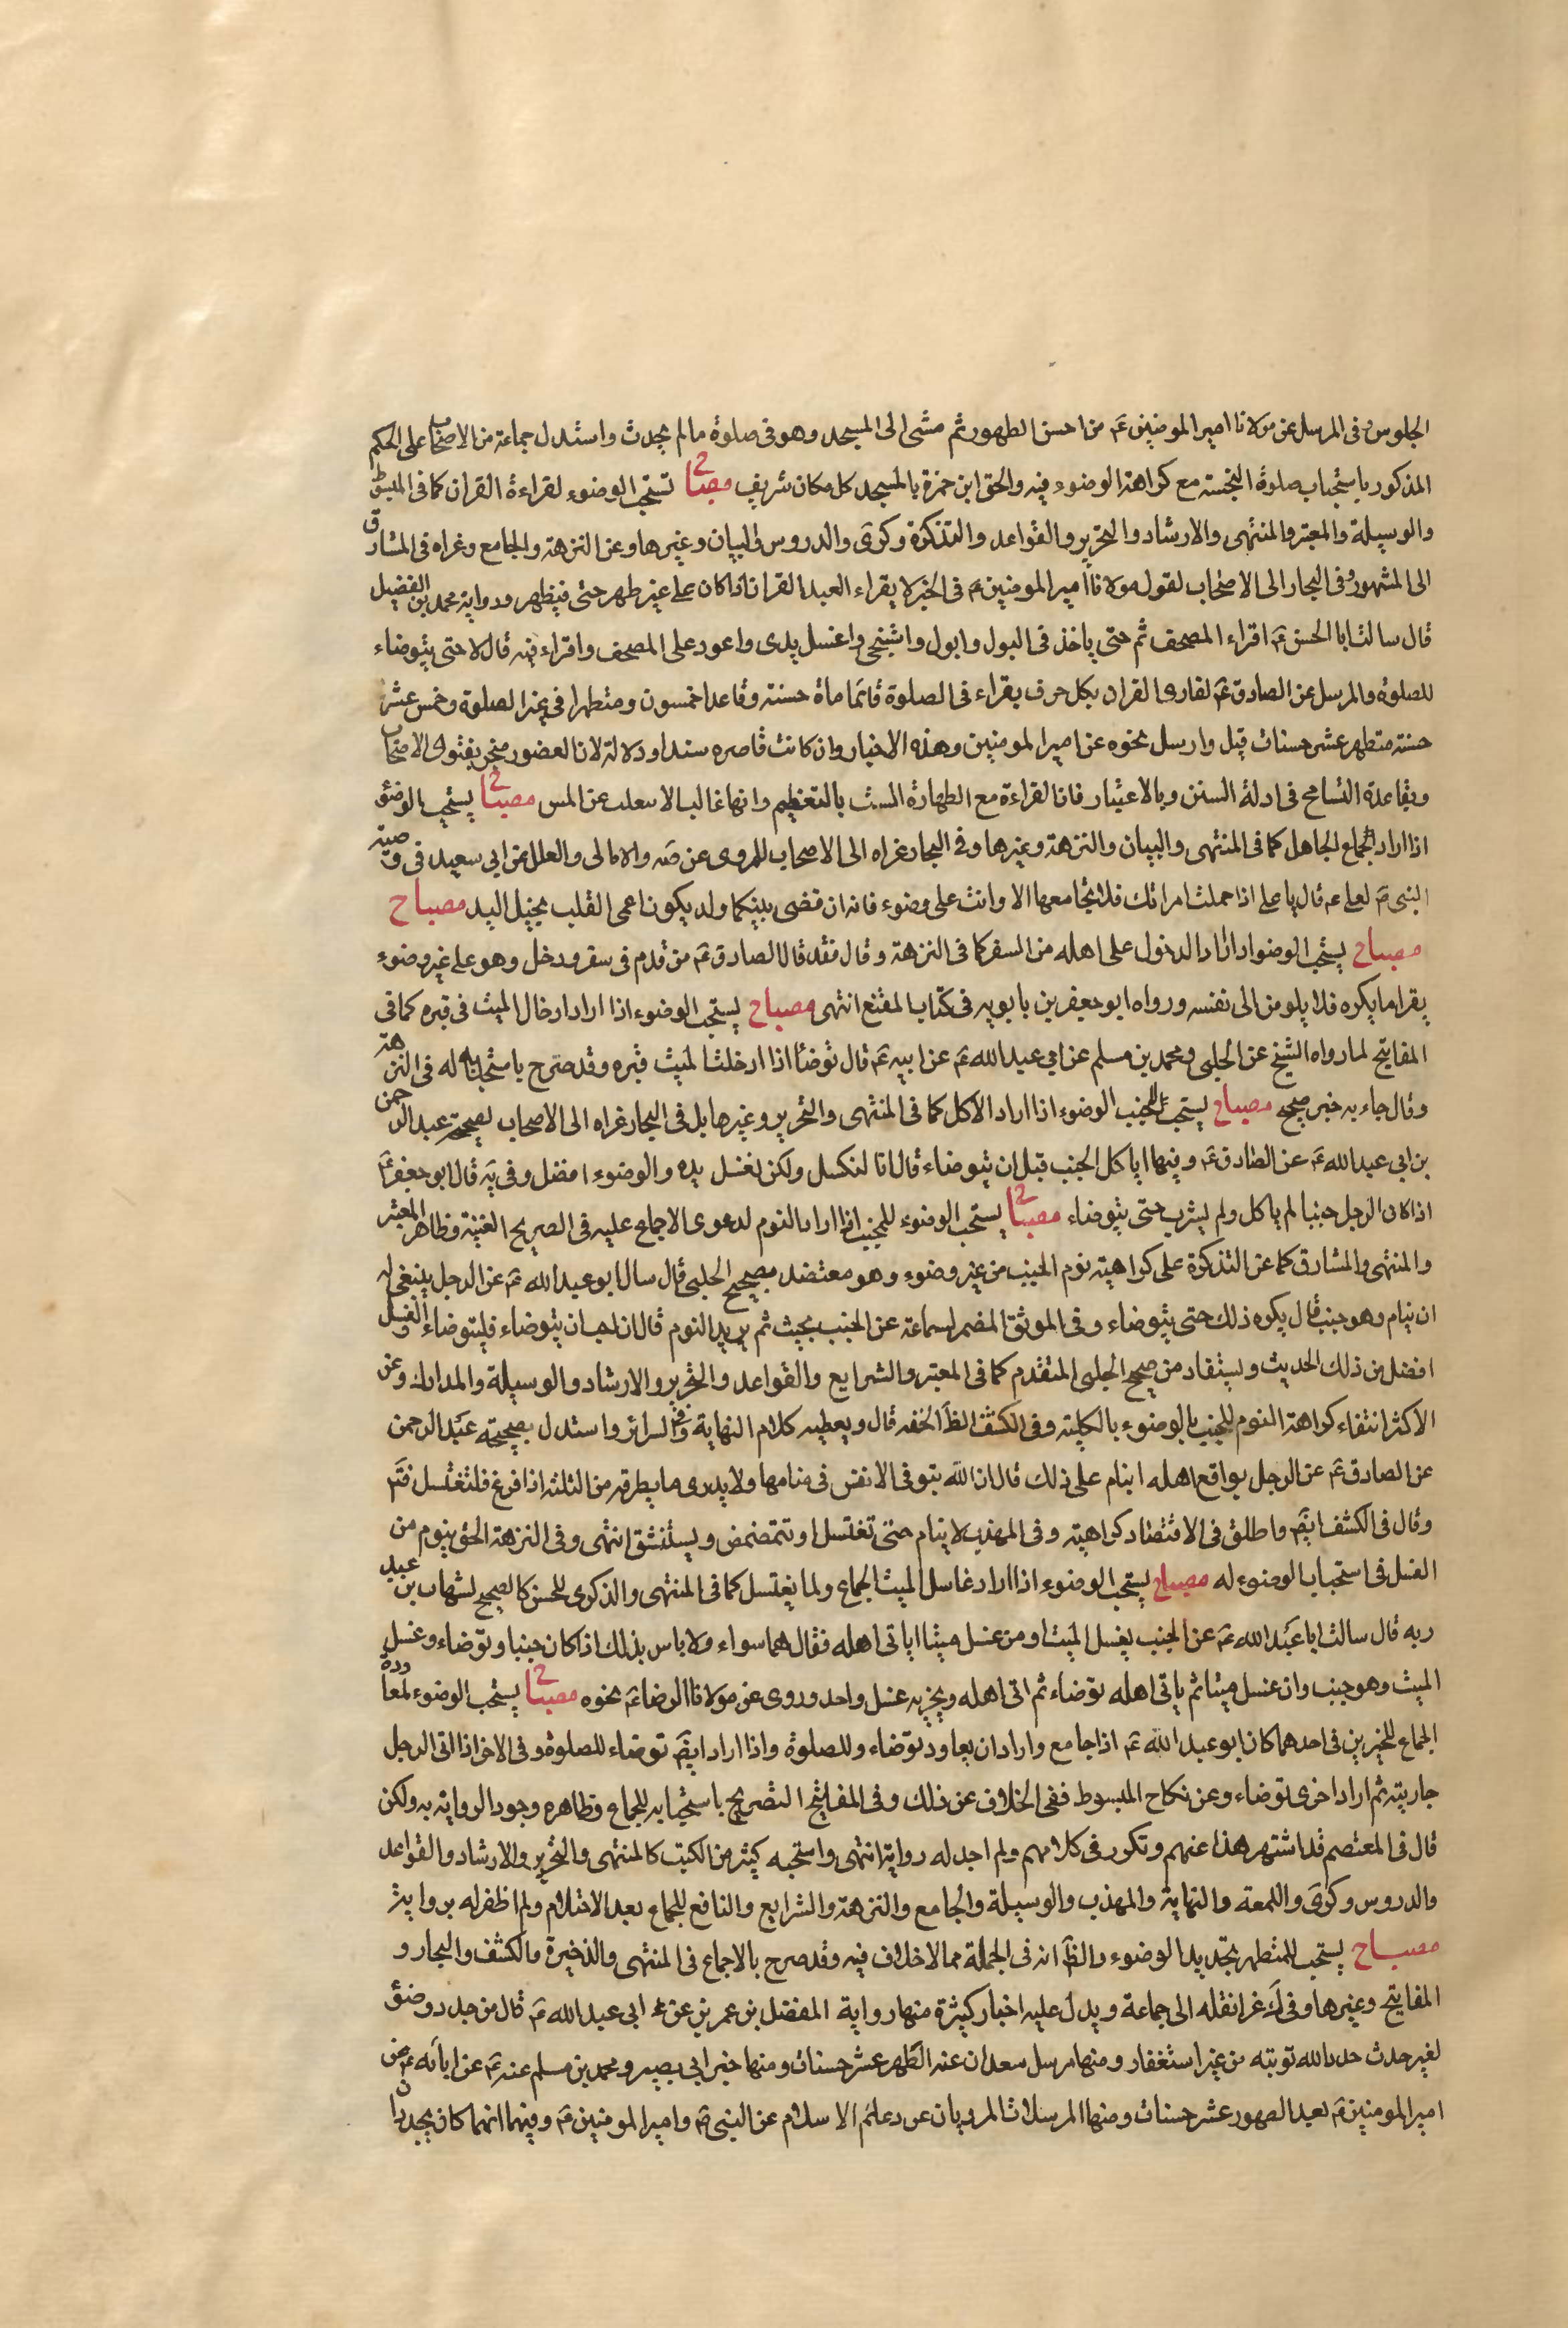 الجلوس وفى المرسل عن مولانا امير المومنين عَ من احسن الطهور ثم مشى الى المسجد وهو فى صلوة ما لم يحدث واستدل جماعة من الاصحاب على الحكم
المذكور باستحباب صلوة التحيته مع كراهة الوضوء فيه والحق ابن حمزة بالمسجد كل مكان شريف مصباح تستحب الوضوء لقراءة القران كما فى المبسوط
والوسيلة والمعتبر والمنتهى والارشاد والتحرير والقواعد والتذكرة وكرى والدروس والبيان وغيرها وعن النزهة والجامع وغراه فى المشارق
الى المشهور وفى البحار الى الاصحاب لقول مولانا امير المومنين عَ فى الخبر لا يقراء العبد القران اذا كان على غير طهر حتى فيتطهر ورواية محمد بن الفضيل
قال سالت ابا الحسن عَ اقراء المصحف ثم حتى ياخذ فى البول وابول واشتنجى واغسل يدى واعود على المصحف واقراء فيه قال لا حتى يتوضاء
للصلوة والمرسل عن الصادق عَ لقارى القران بكل حرف يقراء فى الصلوة قائما ماة حسنة وقاعدا خمسون ومتطهرا فى غير الصلوة وخمس عشر
حسنة متطهر عشر حسنات قيل وارسل نحوه عن امير المومنين وهذه الاخبار وان كانت قاصره سندا ودلالة لان العضور منجر بفتوى الاصحاب
وبقاعدة التسامح فى ادلة السنن وبالاعتبار فان القراءة مع الطهارة بالتعظيم وانها غالبا لا عن المس مصباح يستحب الوضوء
اذا اراد الجماع الحاهل كما فى المنتهى والبيان والنزهة وغيرها وفى البحار غراه الى الاصحاب للمروى عن صَه والامالى والعلل عن ابي سعيد فى وصيته
النبى صَ لعلى عه قال يا على اذا حملت امراتك فلا تجامعها الا وانت على وضوء فانه ان قضى بينكما ولد يكون اعمى القلب بخيل اليد مصباح
مصباح يستحب الوضوا اذا اراد الدخول على اهله من السفر كما فى النزهة وقال فقد قال الصادق عَ من قدم فى سفر ودخل وهو على غير وضوء
يقراما يكره فلا يلومن الى نفسه ورواه ابو جعفر بن بابويه فى كتاب المقنع انتهى مصباح يستحب الوضوء اذا اراد ادخال الميت فى قبره كما فى
المفاتيح لما رواه الشيخ عن الحلبى ومحمد بن مسلم عن ابي عبد الله عَ عن ابيه عَ قال توضأ اذا ادخلت الميت قبره وقد صرح باستحبابه له فى النزهة
وقال جاء به خبر صحيحه مصباح يستحب للجنب الوضوء اذا اراد الاكل كما فى المنتهى والتحرير وغيرها بل فى البحار غراه الى الاصحاب لصحيحة عبد الرحمن
بن ابى عبد الله عَ عن الصادق عَ وفيها ايا كل الجنب قبل ان يتوضاء قال انا لنكسل ولكن لغسل يده والوضوء افضل وفى يَه قال ابو جعفر عَ
اذا كان الرجل جنبا لم ياكل ولم يشرب حتى يتوضاء مصباح يستحب الوضوء للجنب اذا اراد النوم لدعوى الاجماع عليه فى الصريح الغنية وظاهر المعتبر
والمنتهى والمشارق كما عن التذكرة على كراهيته نوم الجنب من غير وضوء وهو معتضد بصحيح الحلبى قال سال ابو عبد الله عَ عن الرجل ينبغى له
ان ينام وهو جنب قال يكره ذلك حتى يتوضاء وفى الموثق المضمر لسماعة عن الجنب يجنب ثم يريد النوم قال ان احب ان يتوضاء فليتوضاء والغسل
افضل من ذلك الحديث ويستفاد من صحيح الحلبى المتقدم كما فى المعتبر والشرايع والقواعد والتحرير والارشاد والوسيلة والمدارك وعن
الاكثر انتفاء كراهة النوم للجنب بالوضوء بالكلية وفى الكشف الظَ الخفه قال ويعطيه كلام النهاية وفى السرائر واستدل بصحيحة عبد الرحمن
عن الصادق عَ عن الرجل يواقع اهله اينام على ذلك قال ان الله يتوفى الانفس فى منامها ولا يدرى ما يطرقه من الثلثه اذا فرغ فلتغتسل فتم
وقال فى الكشف ايضَ واطلق فى الاقتصاد كراهيته وفى المهذب لا ينام حتى تغتسل او تتمضمض ويستنشق انتهى وفى النزهة الحق بنوم من
الغسل فى استحباب الوضوء له مصباح يستحب الوضوء اذا اراد غاسل الميت الجماع ولما يغتسل كما فى المنتهى والذكرى للحسن كالصحيح لشهاب بن عبد
ربه قال سالت ابا عبد الله عَ عن الجنب يغسل الميت او من غسل ميتا اياتى اهله فقال هما سواء ولا باس بذلك اذا كان جنبا وتوضاء وغسل
الميت وهو جنب وان غسل ميتا ثم ياتى اهله توضاء ثم اتى اهله ويجزيه غسل واحد وروى عن مولانا الرضاعَ نحوه مصباح يستحب الوضوء لمعاودة
الجماع للخبرين فى احدهما كان ابو عبد الله عَ اذا جامع واراد ان يعاود توضاء وللصلوة واذا اراد ايضَ توضاء للصلوة وفى الاخر اذا اتى الرجل
جاريته ثم اراد اخرى توضاء وعن نكاح المبسوط ففى الخلاف عن ذلك وفى المفاتيح التصريح باستحبابه للجماع وظاهره وجود الرواية به ولكن
قال فى المعتصم قد اشتهر هذا عنهم وتكرر فى كلامهم ولم اجد له رواية انتهى واستحبه كثير من الكتب كالمنتهى والتحرير والارشاد والقواعد
والدروس وكرى واللمعة والنهاية والمهذب والوسيلة والجامع والنزهة والشرايع والنافع للجماع بعد الاحتلام ولم اظفر له برواية
مصباح يستحب للمتطهر تجديد الوضوء والظَ انه فى الجملة مما لا خلاف فيه وقد صرح بالاجماع فى المنتهى والذخيرة والكشف والبحار و
المفاتيح وغيرها وفى كَ غرا نقله الى جماعة ويدل عليه اخبار كثيرة منها رواية المفضل بن عمر بن عن ابى عبد الله عَ قال من جدد وضوء
لغير حدث جدد الله توبته من غير استغفار ومنها مرسل سعدان عنه الطهر عشر حسنات ومنها خبر ابى بصير ومحمد بن مسلم عنه عَ عن ابائه عن
امير المومنين عَ بعد الطهور عشر حسنات ومنها المرسلات المرويان عن دعائم الاسلام عن النبى صَ وامير المومنين عَ وفيهما انهما كان يجددان